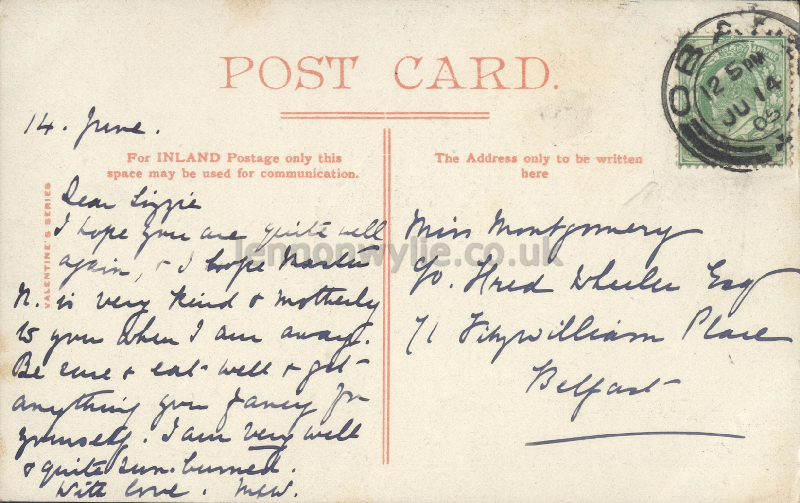 POST CARD.
14. June.
For INLAND Postage only this
space may be used for communication.
The Address only to be written
here
VALENTINE'S SERIES
Dear Lizzie
I hope you are quite well
again, & I hope Master
N. is very kind & motherly
to you when I am away.
Be sure & eat well & get
anything you fancy for
yourself. I am very well
& quite sun-burned.
With love.
Miss Montgomery
c/o. Fred Wheeler Esq
71 Fitzwilliam Place
Belfast
12 5 PM
JU 14
05
lennonwylie.co.uk